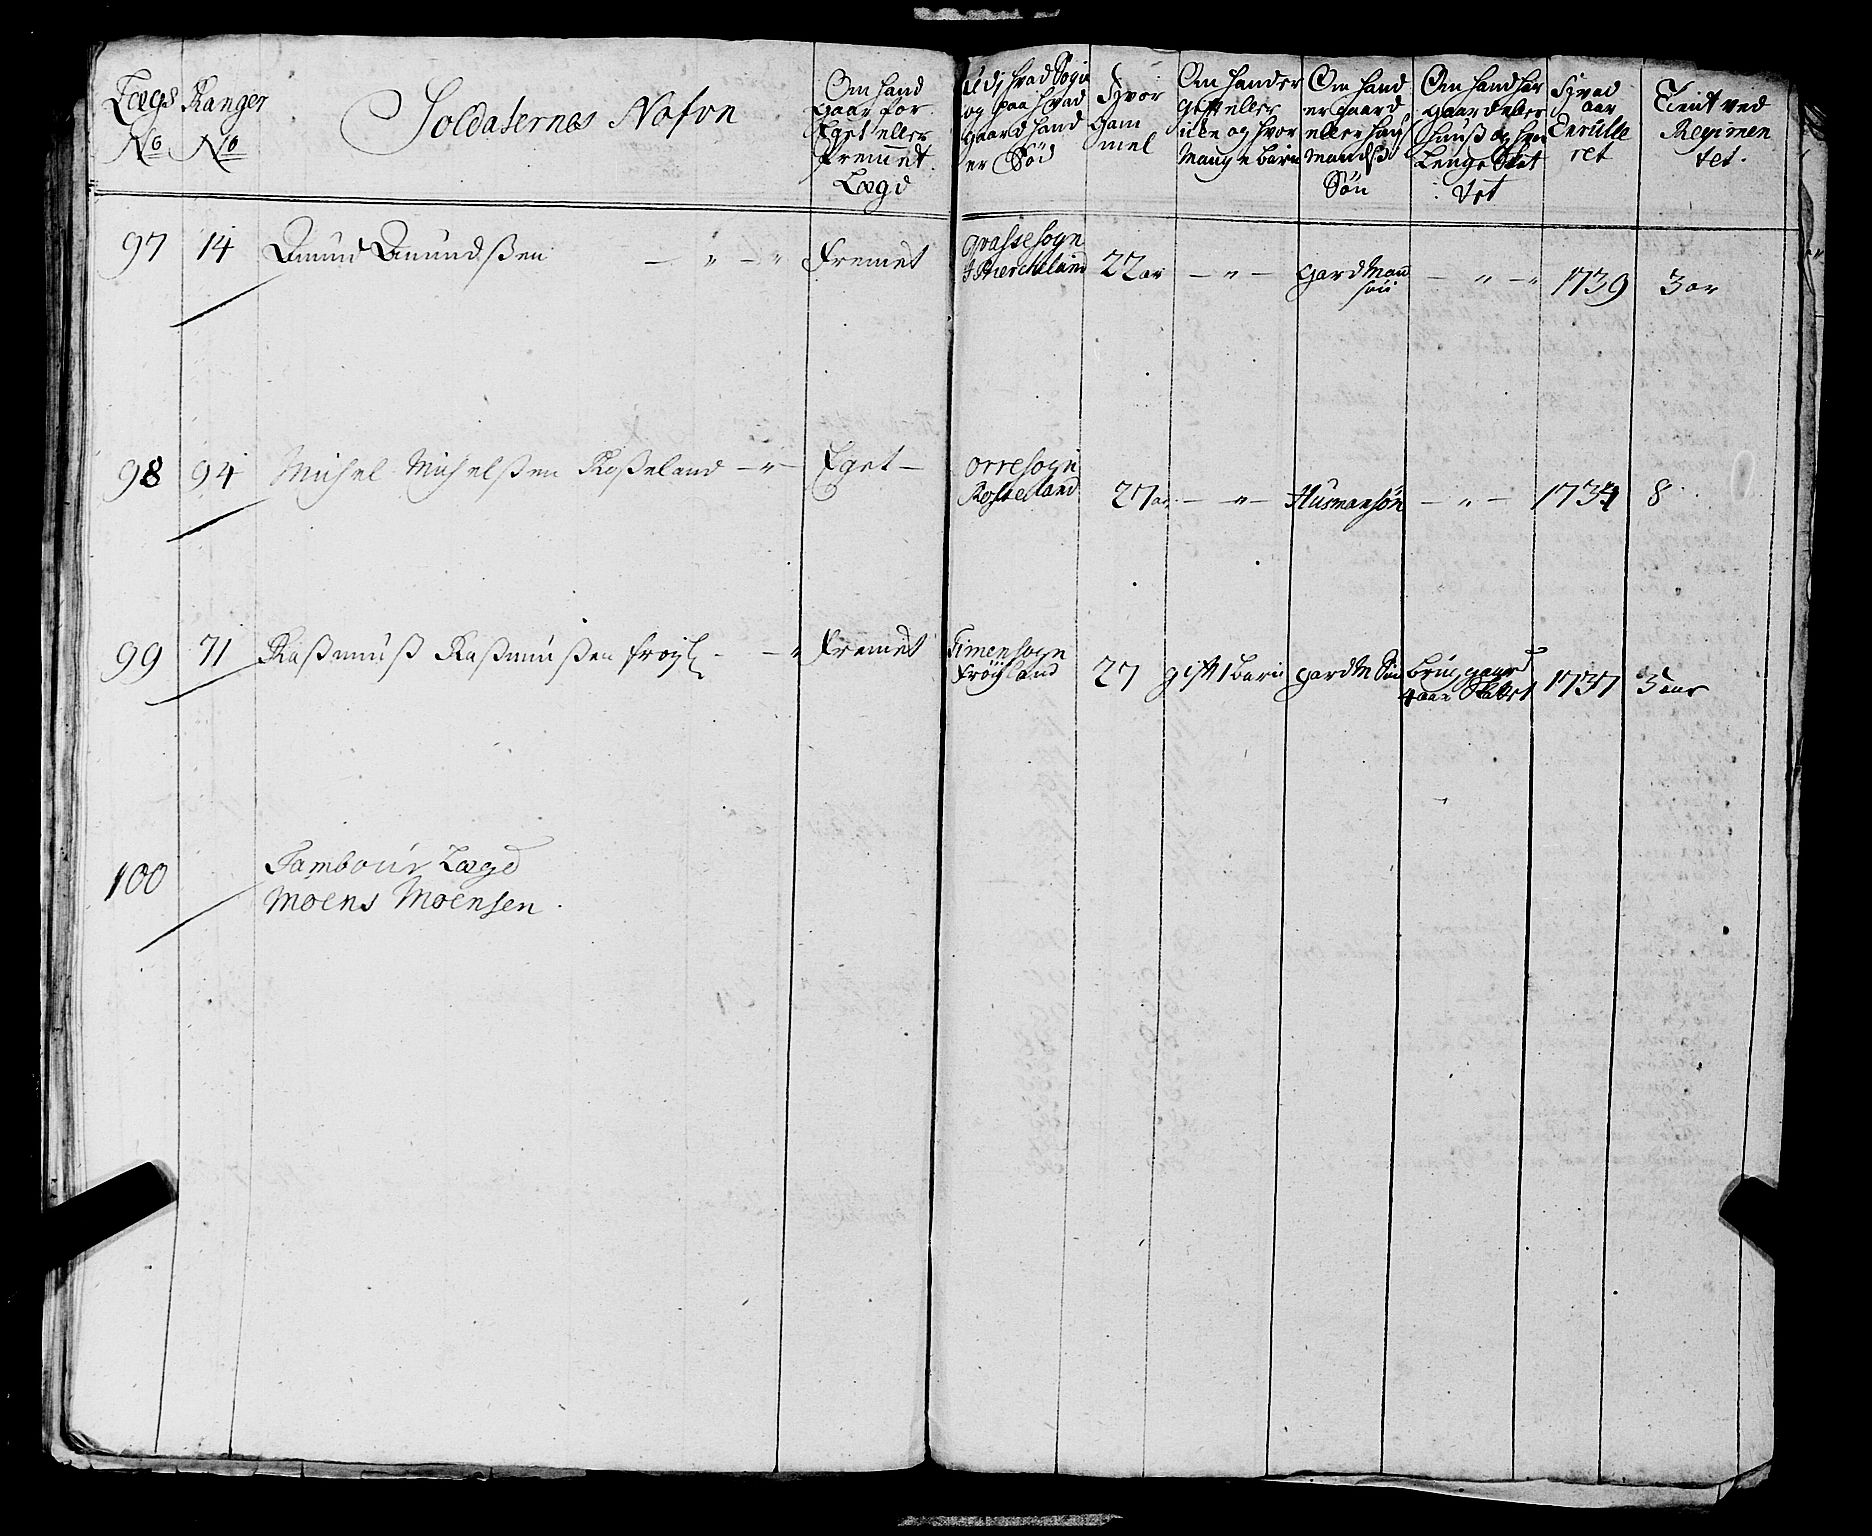 Lægs No
Ranger No
Soldaternes Nafvn
Om hand
gaar for
Eget eller
Fremet
Lægd
Udj hvad Sogn
og paa hvad
gaard hand
er Fød
Hvor
gam
mel
Om hand er
gift eller
icke og hvor
mange barn
Om hand
er gaard
eller huus
mands
Søn
Om hand har
gaard eller
huuß og hvor
Lenge
Hvad
aar
Enrulle
ret
Tient ved
Regimen
tet.
97 14 Amund Amundßen — " — " Fremet
22 ar — " — gard Man
søn
— " — " 1739 3 ar
98 94 Michel Michelßen Roßeland — " — Eget —
orre sogn
Rosseland
27 ar — " — Husmansøn — " — 1734 8
99 71 Raßmuß Raßmußen frøÿl — " Fremet
Timen sogn
Frøÿland
27 gift 1 barn gard M Søn
brug gaard
4 aar
1737 5 aar
100 Tambour Lægd
Moens Moensen.